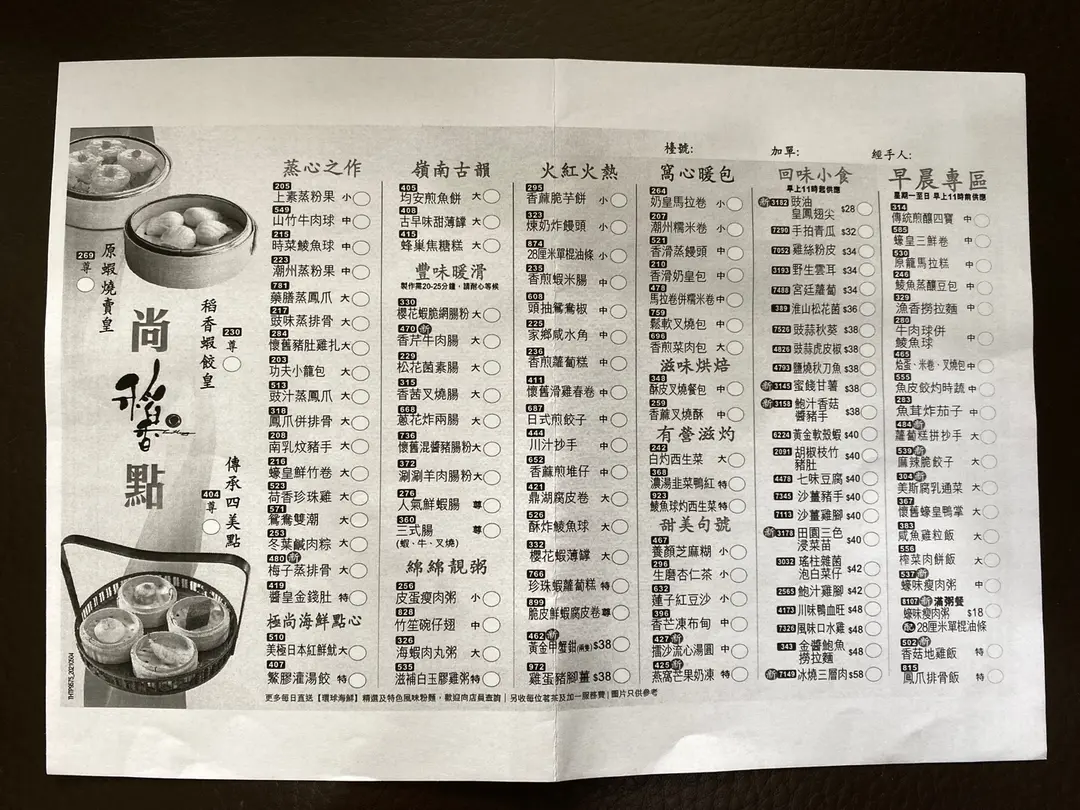 檯號:
加單:
經手人:
269
尊
原蝦燒賣皇
稻香蝦餃皇
230
尊
尚
稻香
點
傳承四美點
404
尊
蒸心之作
205
上素蒸粉果 小
549
山竹牛肉球 中
215
時菜鯪魚球 中
223
潮州蒸粉果 中
781
藥膳蒸鳳爪 大
217
豉味蒸排骨 大
284
懷舊豬肚雞扎 大
203
功夫小籠包 大
513
豉汁蒸鳳爪 大
318
鳳爪併排骨 大
208
南乳炆豬手 大
216
蠔皇鮮竹卷 大
523
荷香珍珠雞 大
571
鴛鴦雙潮 大
253
冬葉鹹肉粽 大
480 新
梅子蒸排骨 大
419
醬皇金錢肚 特
極尚海鮮點心
510
美極日本紅鮮魷 大
407
鱉膠灌湯餃 特
嶺南古韻
405
均安煎魚餅 大
408
古早味甜薄罉 大
415
蜂巢焦糖糕 大
豐味暖滑
製作需20-25分鐘，請耐心等候
330
櫻花蝦脆網腸粉 大
470 新
香芹牛肉腸 大
229
松花菌素腸 大
315
香茜叉燒腸 大
668
蔥花炸兩腸 大
736
懷舊混醬豬腸粉 大
372
涮涮羊肉腸粉 大
276
人氣鮮蝦腸 尊
360
三式腸 尊
(蝦、牛、叉燒)
綿綿靚粥
256
皮蛋瘦肉粥 小
828
竹笙碗仔翅 中
326
海蝦肉丸粥 大
535
滋補白玉膠雞粥 特
火紅火熱
295
香蔴脆芋餅 小
323
煉奶炸饅頭 小
874
28厘米單棍油條 小
235
香煎蝦米腸 中
608
頭抽鴛鴦椒 中
225
家鄉咸水角 中
236
香煎蘿蔔糕 中
411
懷舊滑雞春卷 中
687
日式煎餃子 中
444
川汁抄手 中
652
香蔴煎堆仔 中
421
鼎湖腐皮卷 大
526
酥炸鯪魚球 大
332
櫻花蝦薄罉 大
766
珍珠蝦蘿蔔糕 特
899
脆皮鮮蝦腐皮卷 尊
462 新
黃金甲蟹鉗(兩隻) $38
972
雞蛋豬腳薑 $38
窩心暖包
264
奶皇馬拉卷 小
207
潮州糯米卷 小
521
香滑蒸饅頭 中
210
香滑奶皇包 中
478
馬拉卷併糯米卷 中
759
鬆軟叉燒包 中
696
香煎菜肉包 大
滋味烘焙
348
酥皮叉燒餐包 中
259
香蔴叉燒酥 中
有營滋灼
242
白灼西生菜 大
368
濃湯韭菜鴨紅 特
923
鯪魚球灼西生菜 特
甜美句號
467
養顏芝麻糊 小
296
生磨杏仁茶 小
632
蓮子紅豆沙 小
396
香芒凍布甸 中
427 新
擂沙流心湯圓 中
425 新
燕窩芒果奶凍 特
回味小食
早上11時起供應
新 3182 豉油
皇鳳翅尖 $28
7290 手拍青瓜 $32
7052 雞絲粉皮 $34
3193 野生雲耳 $34
7488 宮廷蘿蔔 $34
389 淮山松花菌 $36
7526 豉蒜秋葵 $38
4826 豉蒜虎皮椒 $38
4793 鹽燒秋刀魚 $38
新 3145 蜜餞甘薯 $38
新 3158 鮑汁香菇
醬豬手 $38
6224 黃金軟殼蝦 $40
2091 胡椒枝竹
豬肚 $40
4478 七味豆腐 $40
7345 沙薑豬手 $40
7113 沙薑雞腳 $40
新 3178 田園三色
浸菜苗 $40
3032 瑤柱雜菌
泡白菜仔 $42
2565 鮑汁雞腳 $42
4173 川味鴨血旺 $48
7326 風味口水雞 $48
343 金醬鮑魚
撈拉麵 $48
新 7149 冰燒三層肉 $58
早晨專區
星期一至日 早上11時前供應
314
傳統煎釀四寶 中
565
蠔皇三鮮卷 中
530
原籠馬拉糕 中
246
鯪魚蒸釀豆包 中
329
漁香撈拉麵 中
280
牛肉球併
鯪魚球 中
465
焓蛋、米卷、叉燒包 中
555
魚皮餃灼時蔬 中
283
魚茸炸茄子 中
484 新
蘿蔔糕拼抄手 大
539 新
麻辣脆餃子 大
304 新
美斯腐乳通菜 大
367
懷舊蠔皇鴨掌 大
383
咸魚雞粒飯 大
556
榨菜肉餅飯 大
537 新
蠔味瘦肉粥 中
8107 新 滿粥餐
蠔味瘦肉粥 $18
配 28厘米單棍油條
502 新
香菇地雞飯 特
815
鳳爪排骨飯 特
更多每日直送【環球海鮮】精選及特色風味粉麵，歡迎向店員查詢 | 另收每位茗茶及加一服務費 | 圖片只供參考